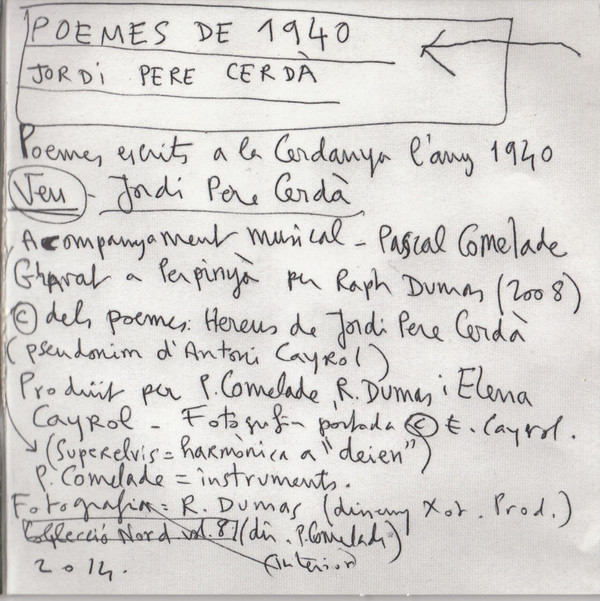 POEMES DE 1940
JORDI PERE CERDÀ
Poemes escrits a la Cerdanya l'any 1940
Veu - Jordi Pere Cerdà
Acompanyament musical - Pascal Comelade
Gravat a Perpinyà per Raph Dumas (2008)
© dels poemes: Hereus de Jordi Pere Cerdà
(pseudonim d'Antoni Cayrol)
Produït per P. Comelade, R. Dumas i Elena
Cayrol - Fotografia portada © E. Cayrol.
(Superelvis = harmònica a "deien")
P. Comelade = instruments.
Fotografia = R. Dumas (disseny Xot. Prod.)
Col·lecció Nord vol. 8 (dir. P. Comelade)
2014. (interior)